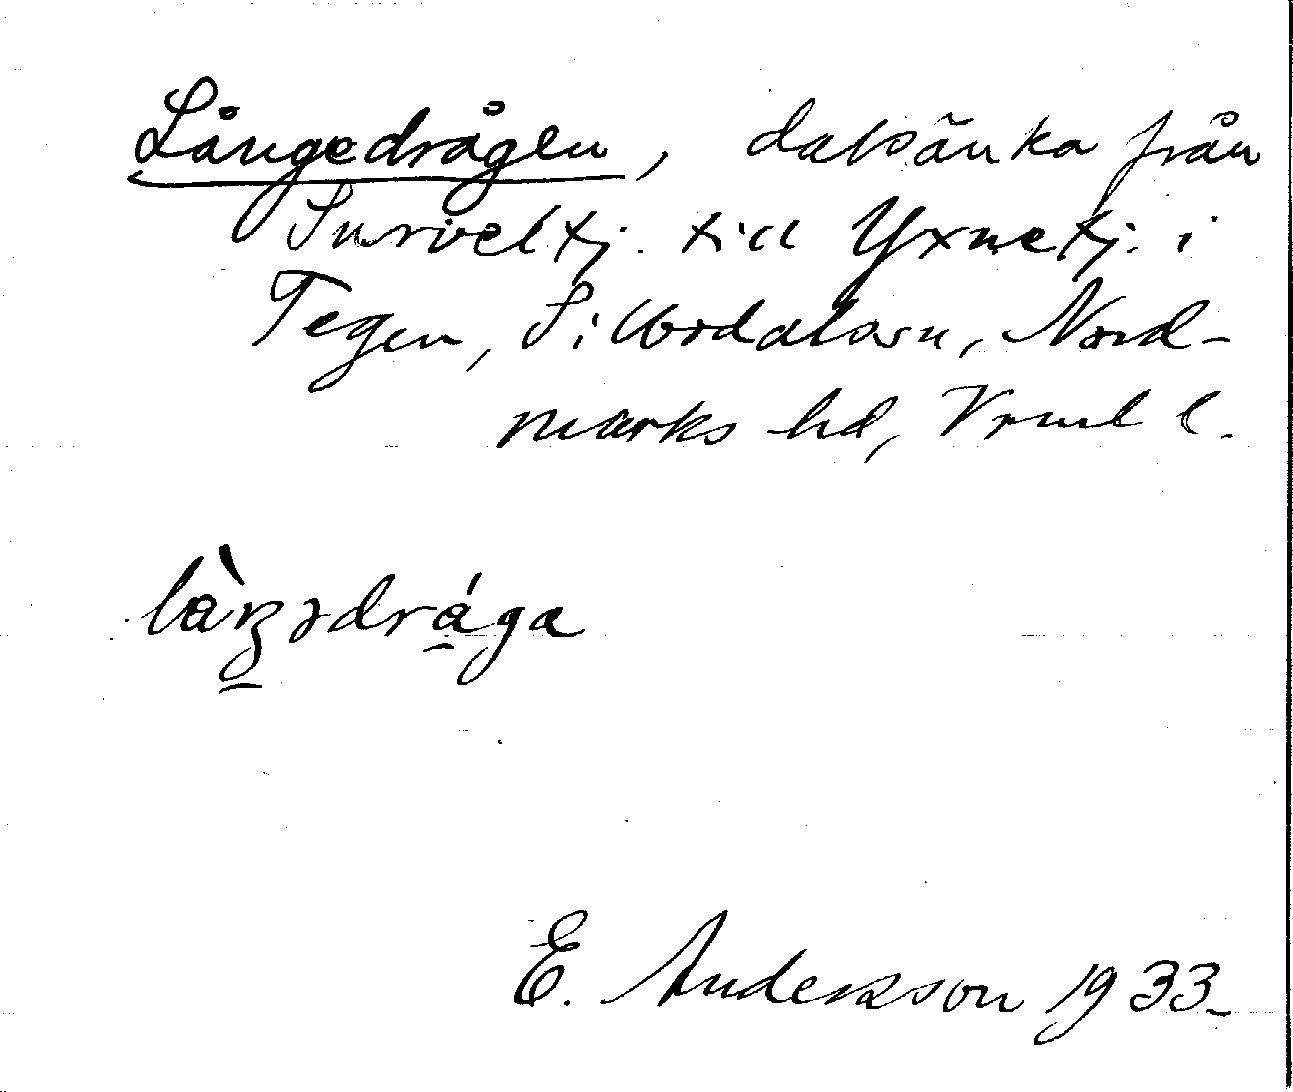 Långedrågen, dalsänka från
Surveltj. till Yxnetj. i
Tegen, Sillbodalssn, Nord-
marks hd, Vrml l.
làŋ̠ədrága
E. Andersson 1933.